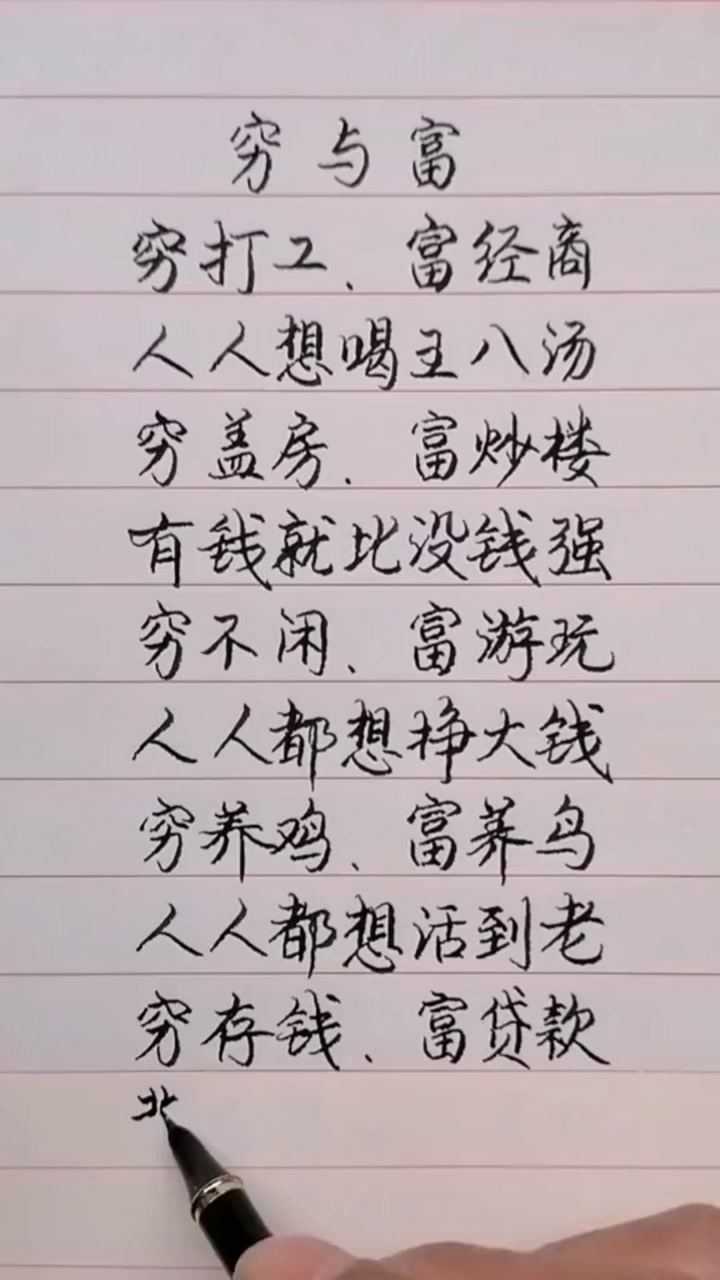 穷与富
穷打工、富经商
人人想喝王八汤
穷盖房、富炒楼
有钱就比没钱强
穷不闲、富游玩
人人都想挣大钱
穷养鸡、富养鸟
人人都想活到老
穷存钱、富贷款